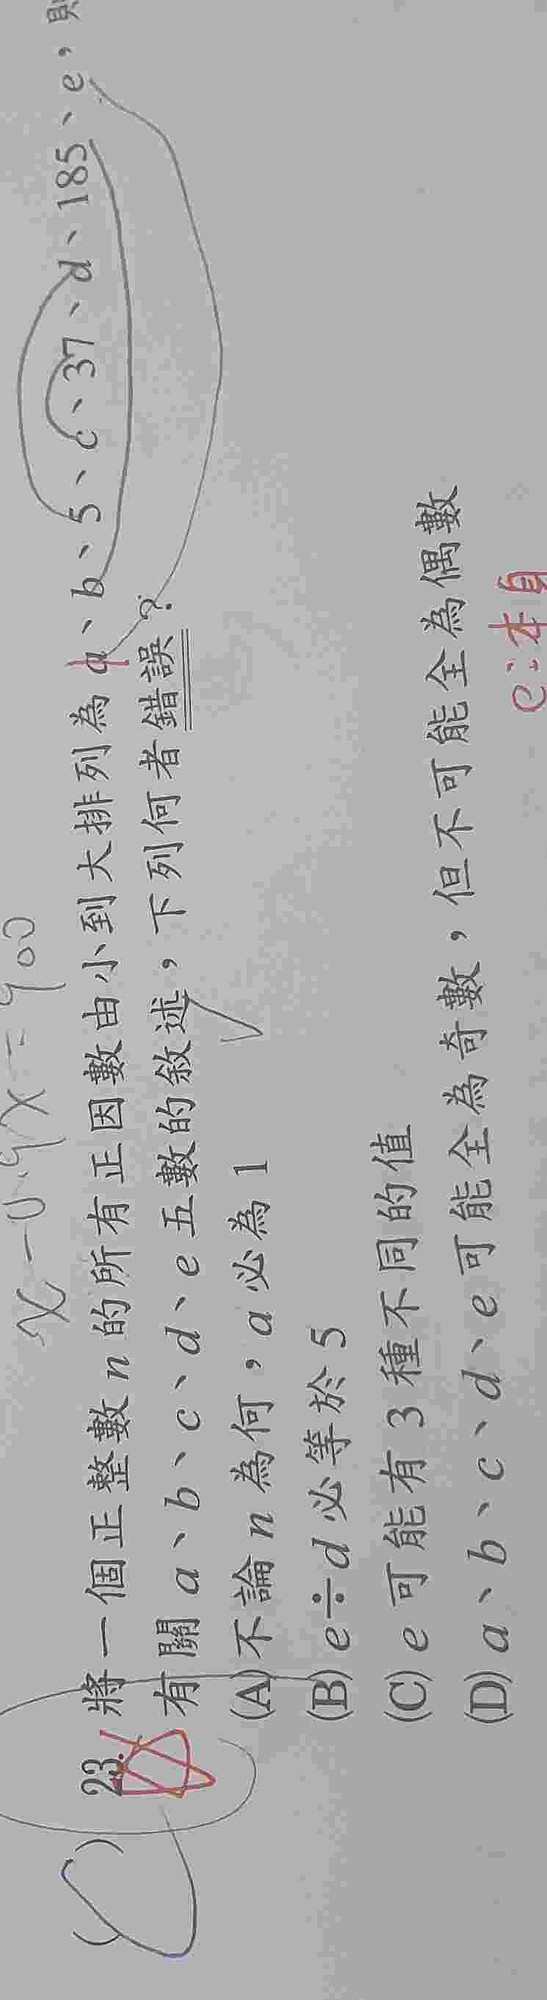 x-0.9x=900
23. 將一個正整數 n 的所有正因數由小到大排列為 a、b、5、c、37、d、185、e,則
有關 a、b、c、d、e 五數的敘述,下列何者錯誤?
(A)不論 n 為何,a 必為 1
(B) e÷d 必等於 5
(C) e 可能有 3 種不同的值
(D) a、b、c、d、e 可能全為奇數,但不可能全為偶數
e:本身